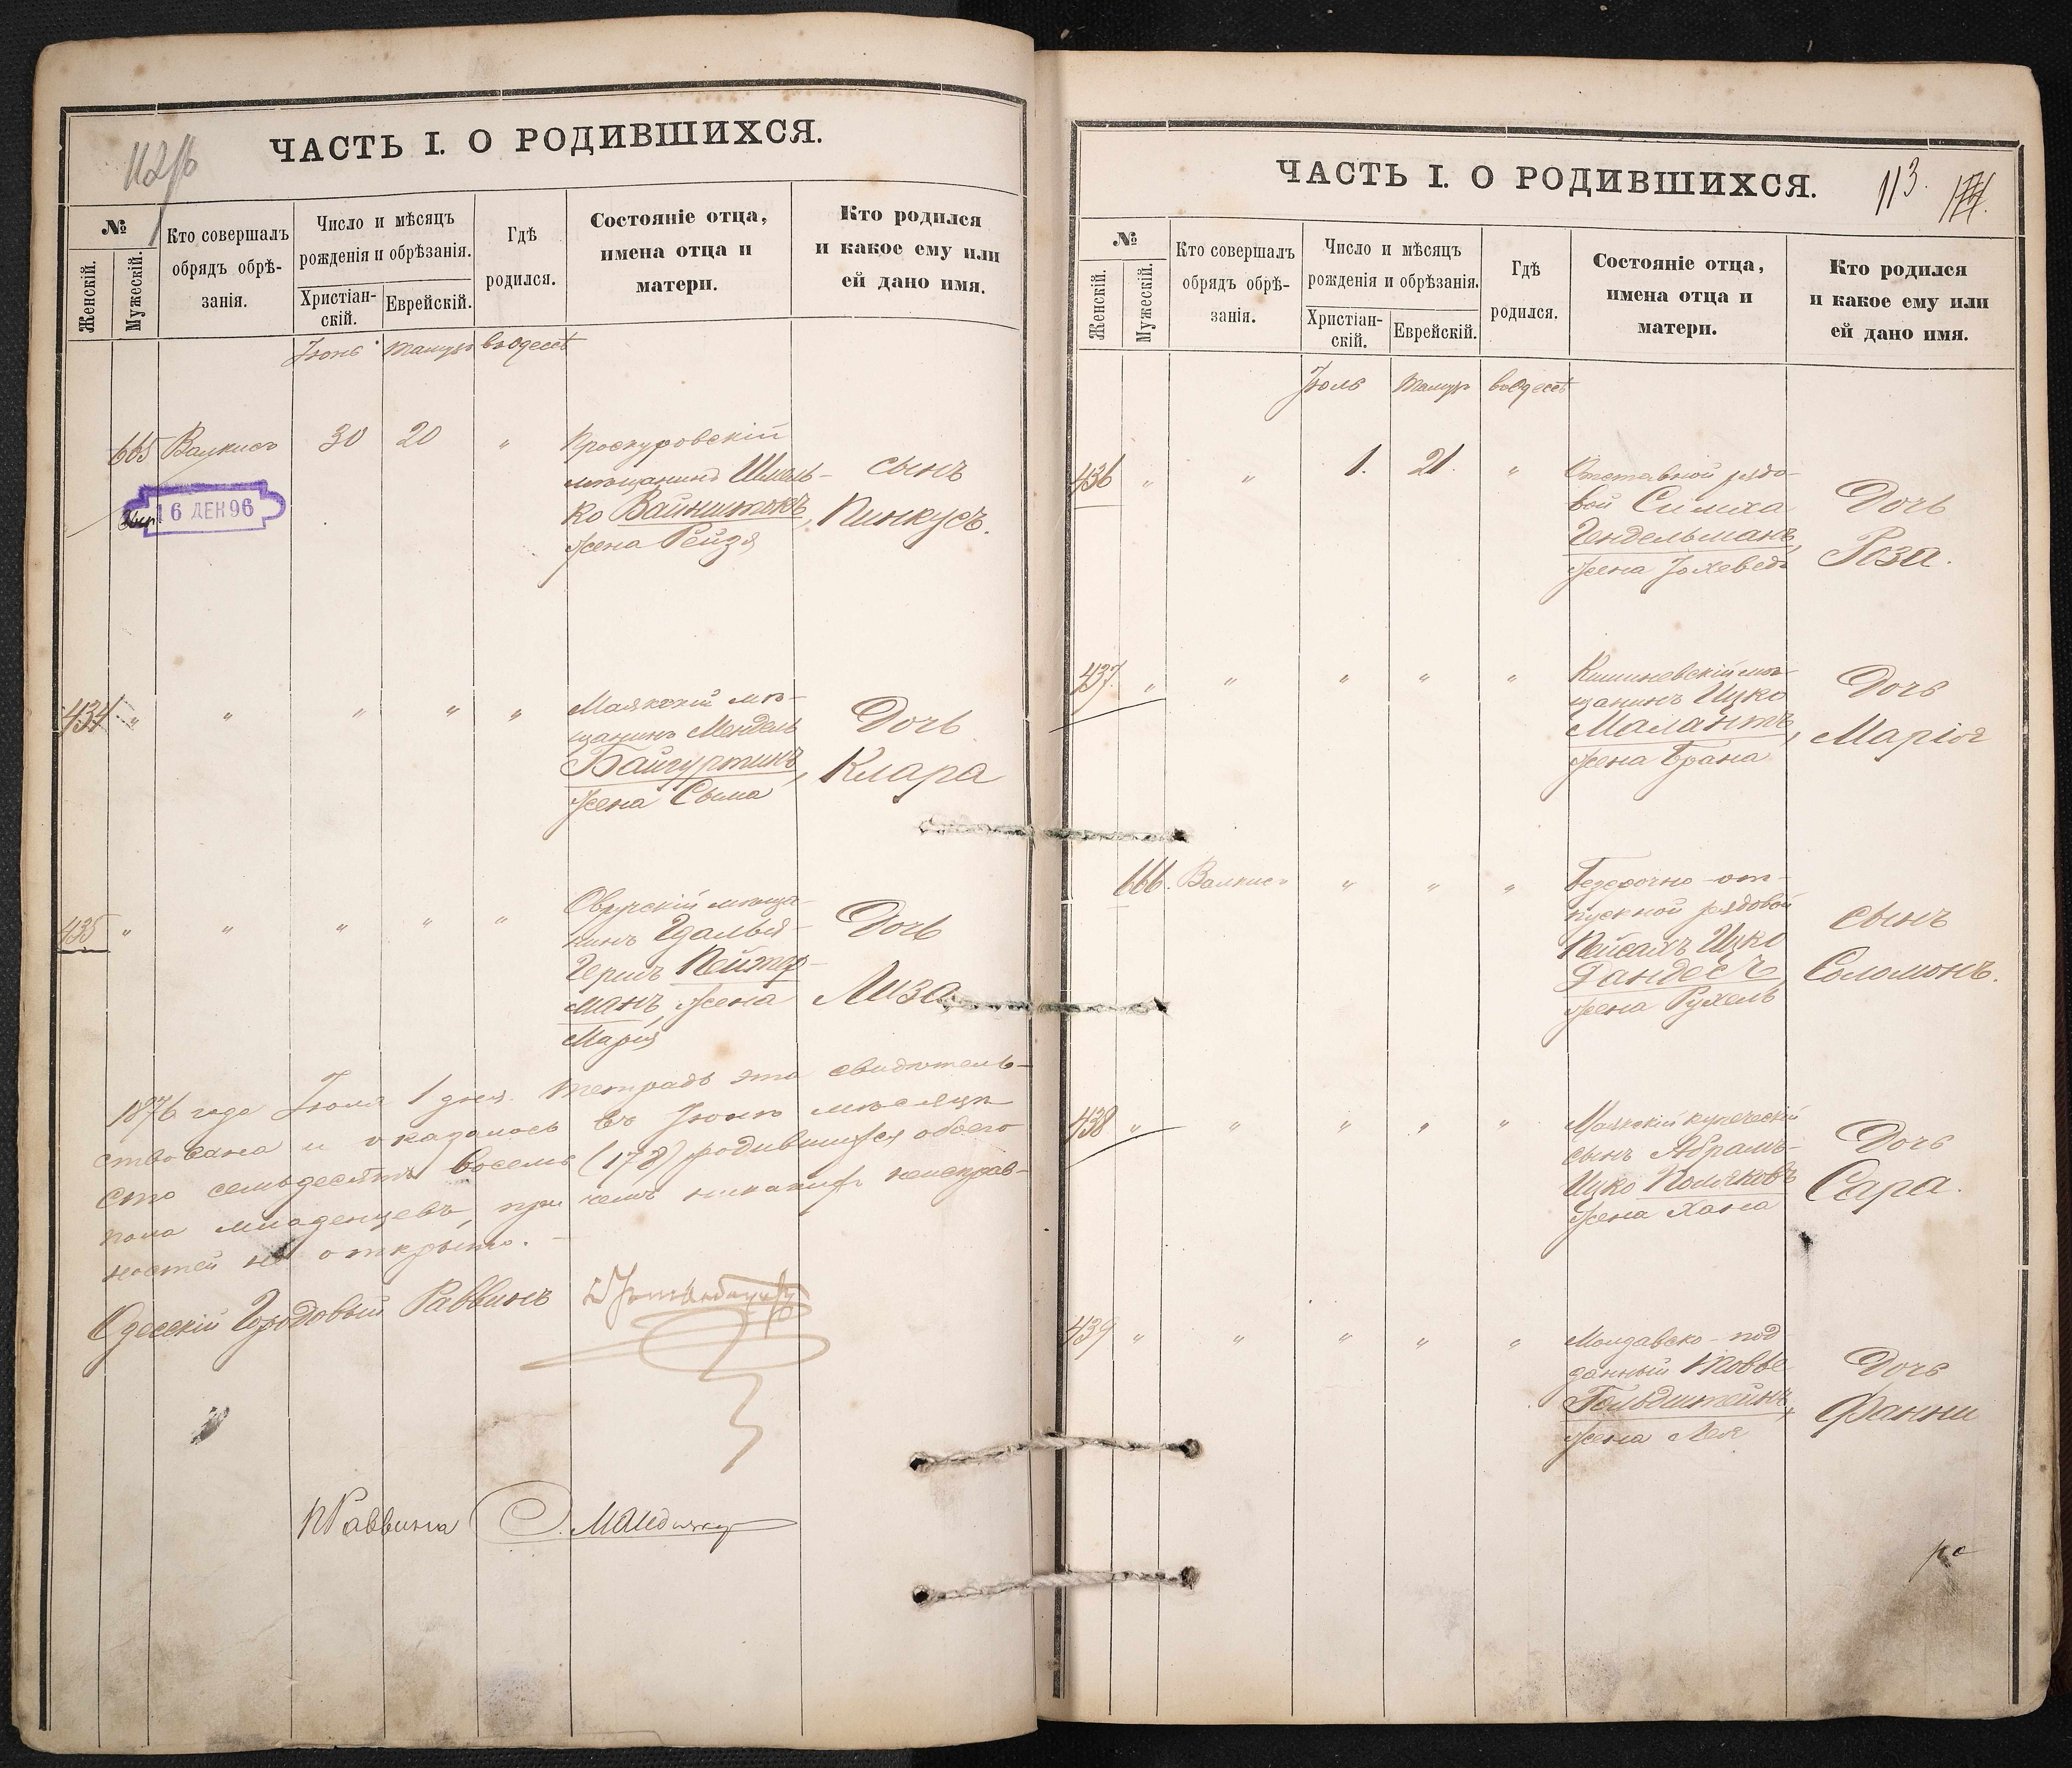 ЧАСТЬ I. О РОДИВШИХСЯ.
№
Женскій.
Мужескій.
Кто совершалъ
обрядъ обрѣ-
занія.
Число и мѣсяцъ
рожденія и обрѣзанія.
Христіан-
скій.
Еврейскій.
Гдѣ
родился.
Состояніе отца,
имена отца и
матери.
Кто родился
и какое ему или
ей дано имя.
Іюнь Тамузъ въ Одессѣ
665 Валкисъ 30 20 "
Проскуровскій
мѣщанинъ Шмель-
ко Вайнштокъ,
жена Рейзя
сынъ
Пинкусъ.
16 ДЕК 96
434 " " " " "
Маякскій мѣ-
щанинъ Мендель
Байгуртикъ,
жена Сыма
Дочь
Клара
435 " " " " "
Овручскій мѣща-
нинъ Гдалья-
Гершъ Пейтер-
манъ, жена
Марія
Дочь
Лиза
1876 года Іюля 1 дня. Тетрадь эта свидѣтель-
ствована и оказалось въ Іюнѣ мѣсяцѣ
сто семьдесятъ восемь (178) родившихся обоего
пола младенцевъ, при чемъ никакихъ неисправ-
ностей не открыто.
Одесскій Городовый Раввинъ
П Раввина
ЧАСТЬ I. О РОДИВШИХСЯ.
113.
№
Женскій.
Мужескій.
Кто совершалъ
обрядъ обрѣ-
занія.
Число и мѣсяцъ
рожденія и обрѣзанія.
Христіан-
скій.
Еврейскій.
Гдѣ
родился.
Состояніе отца,
имена отца и
матери.
Кто родился
и какое ему или
ей дано имя.
Іюль Тамузъ въ Одессѣ
436 " " 1. 21. "
Отставной рядо-
вой Симха
Гендельманъ,
жена Іохеведъ
Дочь
Роза.
437 " " " " "
Кишиневскій мѣ-
щанинъ Ицко
Маламтъ,
жена Брана
Дочь
Марія
666. Валкисъ " " "
Безсрочно-от-
пускной рядовой
Пейсахъ Ицко
жена Рухель
сынъ
Соломонъ.
438 " " " " "
Маякскій купеческій
сынъ Абрамъ-
Ицко Поляковъ
жена Хана
Дочь
Сара.
439 " " " " "
Молдавско-под
данный Товье
Гольдштейнъ,
жена Лея
Дочь
Фанни